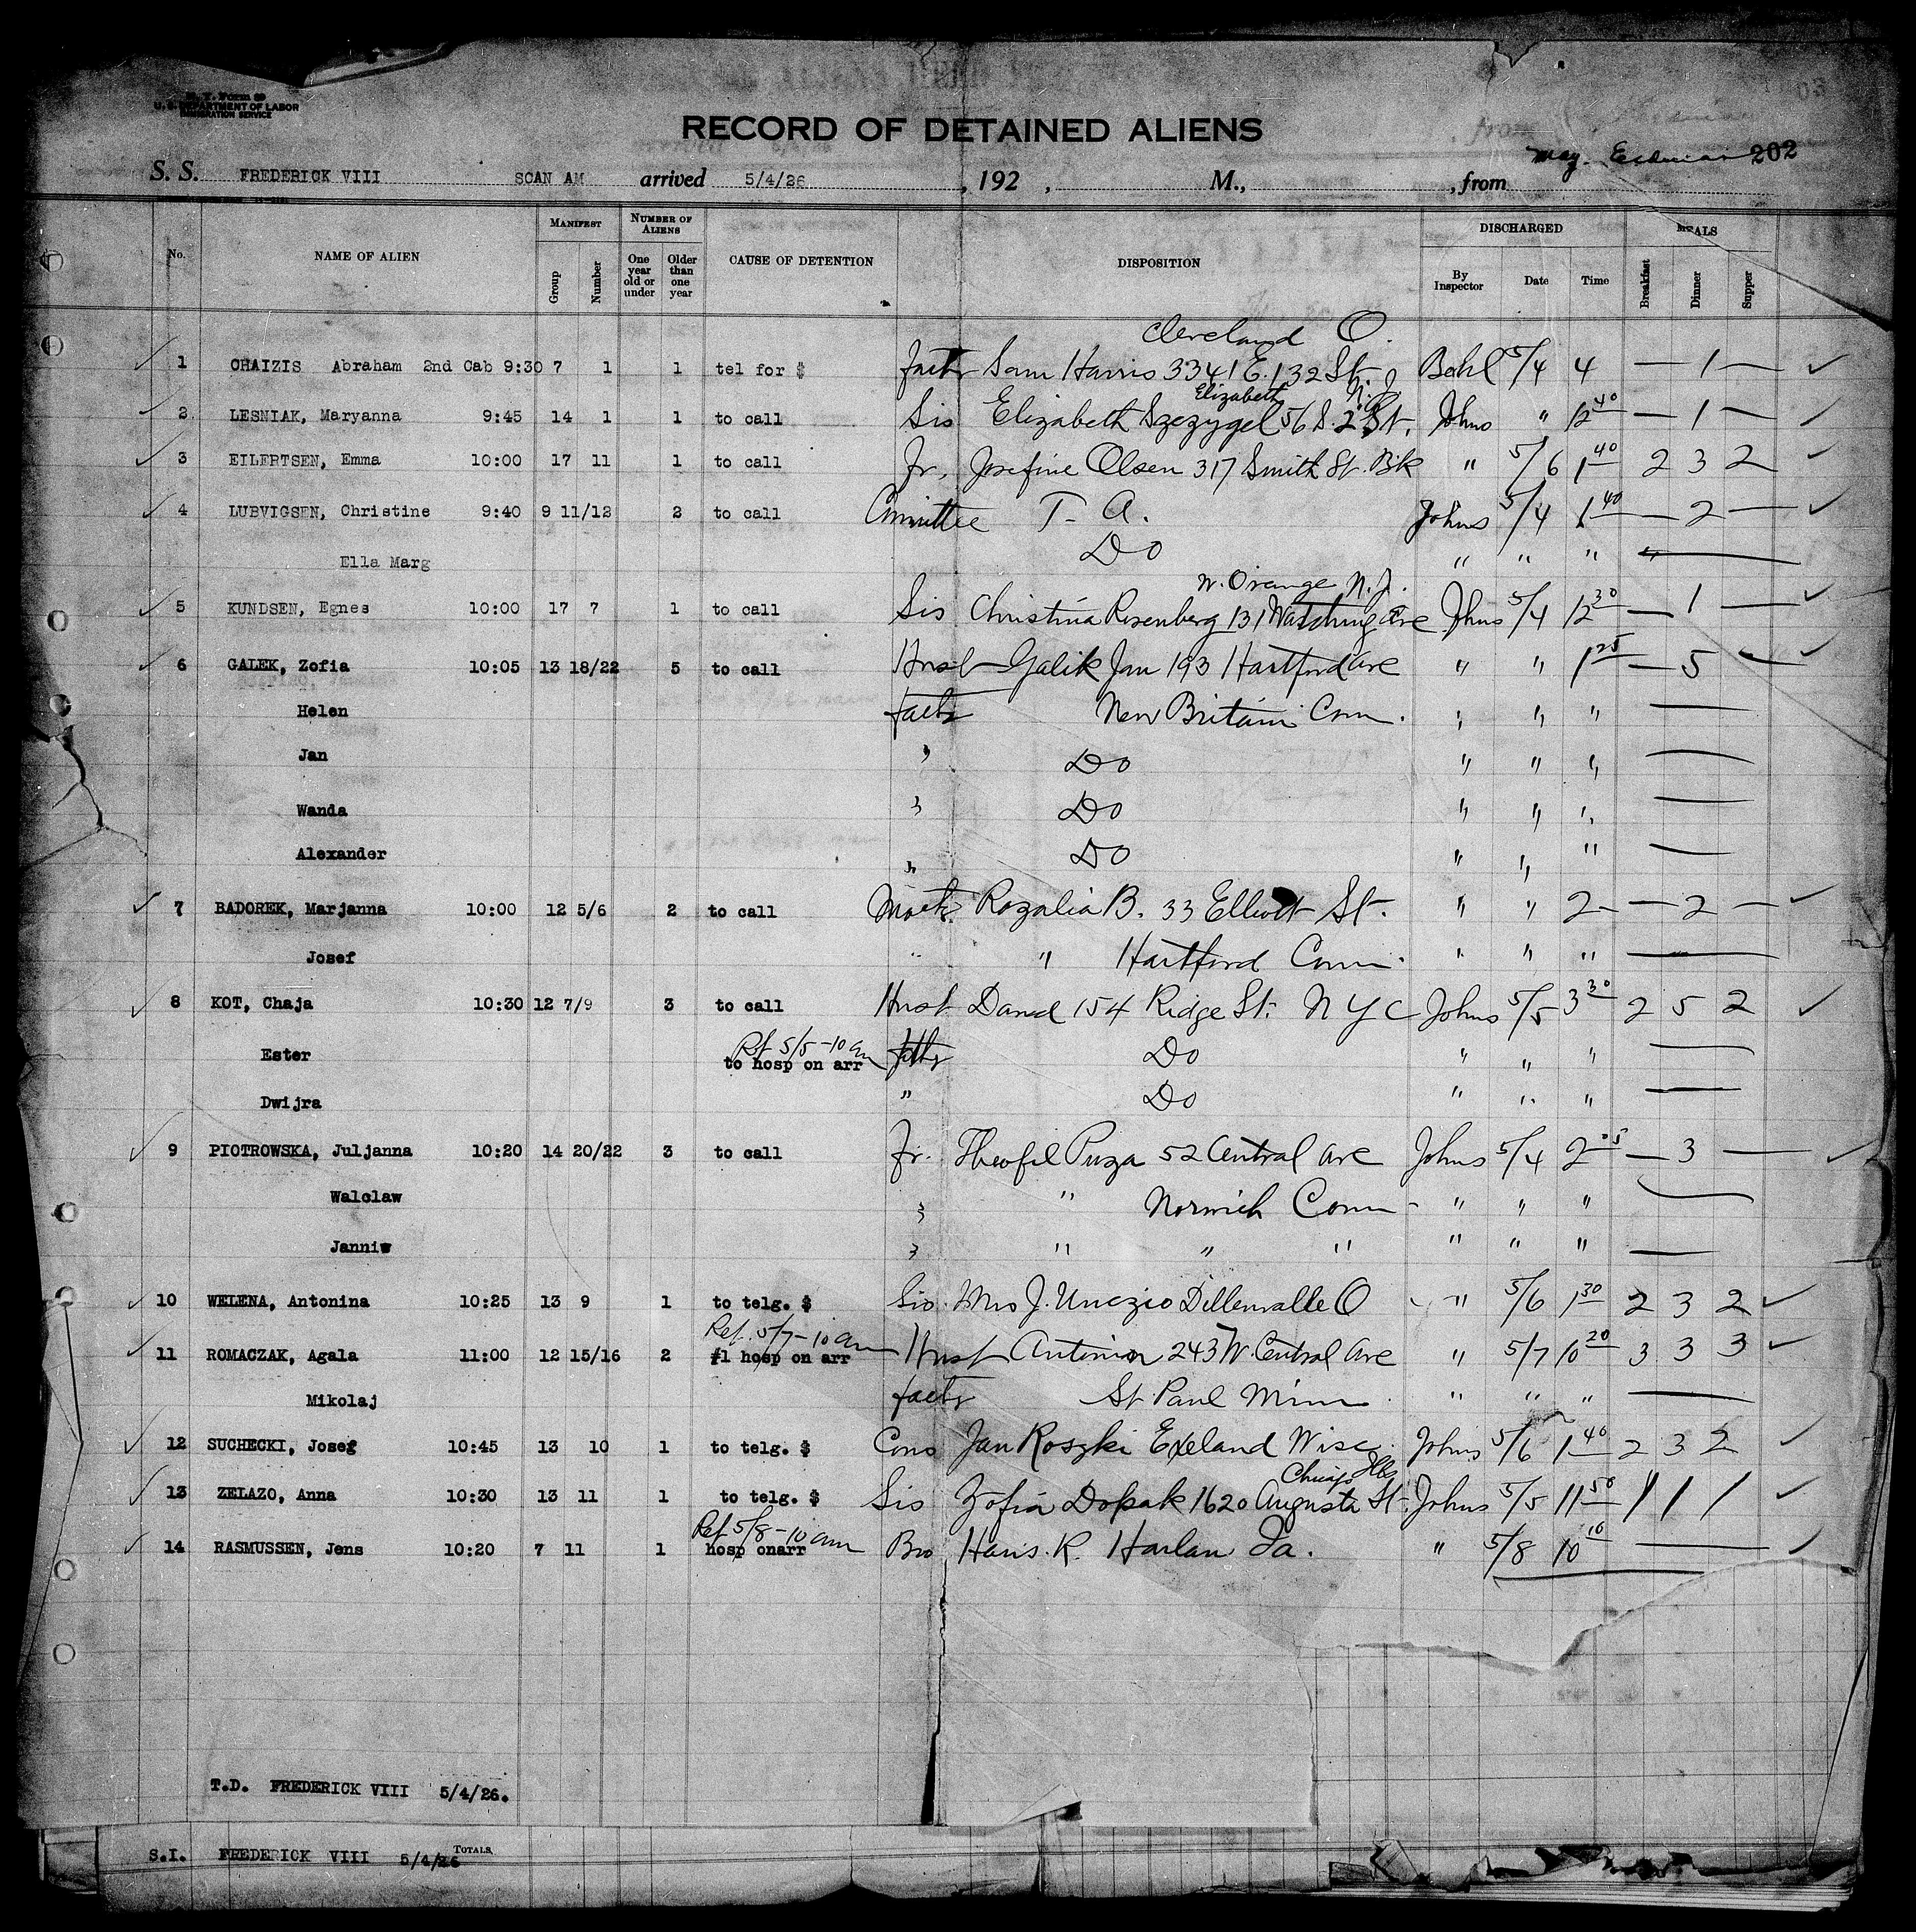 N. Y. Form 99
U. S. DEPARTMENT OF LABOR
IMMIGRATION SERVICE
RECORD OF DETAINED ALIENS
202
S. S. FREDERICK VIII SCAN AM arrived 5/4/26 , 192 , M., , from
No. NAME OF ALIEN MANIFEST Group Number NUMBER OF ALIENS One year old or under Older than one year CAUSE OF DETENTION DISPOSITION DISCHARGED By Inspector Date Time MEALS Breakfast Dinner Supper
Cleveland O.
1 CHAIZIS Abraham 2nd Cab 9:30 7 1 1 tel for $ fath Sam Harris 3341 E. 132 St. Bahl 5/4 4 — 1 —
Elizabeth N.J.
2 LESNIAK, Maryanna 9:45 14 1 1 to call Sis Elizabeth Szezygel 56 S. 2 St. Johns " 12 40 — 1 —
3 EILERTSEN, Emma 10:00 17 11 1 to call Fr. Josefine Olsen 317 Smith St. Bik " 5/6 1 40 2 3 2
4 LUBVIGSEN, Christine 9:40 9 11/12 2 to call Committee T- A. Johns 5/4 1 40 — 2 —
Ella Marg Do " " " "
W. Orange N. J.
5 KUNDSEN, Egnes 10:00 17 7 1 to call Sis Christina Rosenberg 131 Watchung Ave Johns 5/4 12 30 — 1 —
6 GALEK, Zofia 10:05 13 18/22 5 to call Husb Galik Jan 193 Hartford Ave " " 1 25 — 5 —
Helen fath New Britain Conn. " " "
Jan " Do " " "
Wanda " Do " " "
Alexander " Do " " "
7 BADOREK, Marjanna 10:00 12 5/6 2 to call Moth Rozalia B. 33 Elliott St. " " 2 — — 2 —
Josef " " Hartford Conn. " " "
8 KOT, Chaja 10:30 12 7/9 3 to call Husb David 154 Ridge St. N Y C Johns 5/5 3 30 2 5 2
Ret 5/5 - 10 am
Ester to hosp on arr fath Do " " "
Dwijra " Do " " "
9 PIOTROWSKA, Juljanna 10:20 14 20/22 3 to call Fr. Theofil Puza 52 Central Ave Johns 5/4 2 05 — 3 —
Walclaw " " Norwich Conn - " " "
Janniw " " " " " " "
10 WELENA, Antonina 10:25 13 9 1 to telg. $ Sis. Mrs J. Unezio Dillenvalle O " 5/6 1 30 2 3 2
Ret. 5/7 - 10 am
11 ROMACZAK, Agala 11:00 12 15/16 2 #1 hosp on arr Husb Antinion 243 W. Central Ave " 5/7 10 20 3 3 3
Mikolaj fath St Paul Minn " " "
12 SUCHECKI, Josef 10:45 13 10 1 to telg. $ Cous Jan Roszki Exeland Wisc. Johns 5/6 1 40 2 3 2
Chicago Ills
13 ZELAZO, Anna 10:30 13 11 1 to telg. $ Sis Zofia Dopak 1620 Augusta St. Johns 5/5 11 50 1 1 1
Ret 5/8 - 10 am
14 RASMUSSEN, Jens 10:20 7 11 1 hosp onarr Bro Hans. R. Harlan Ia. " 5/8 10 10
T.D. FREDERICK VIII 5/4/26.
S.I. FREDERICK VIII 5/4/26 TOTALS